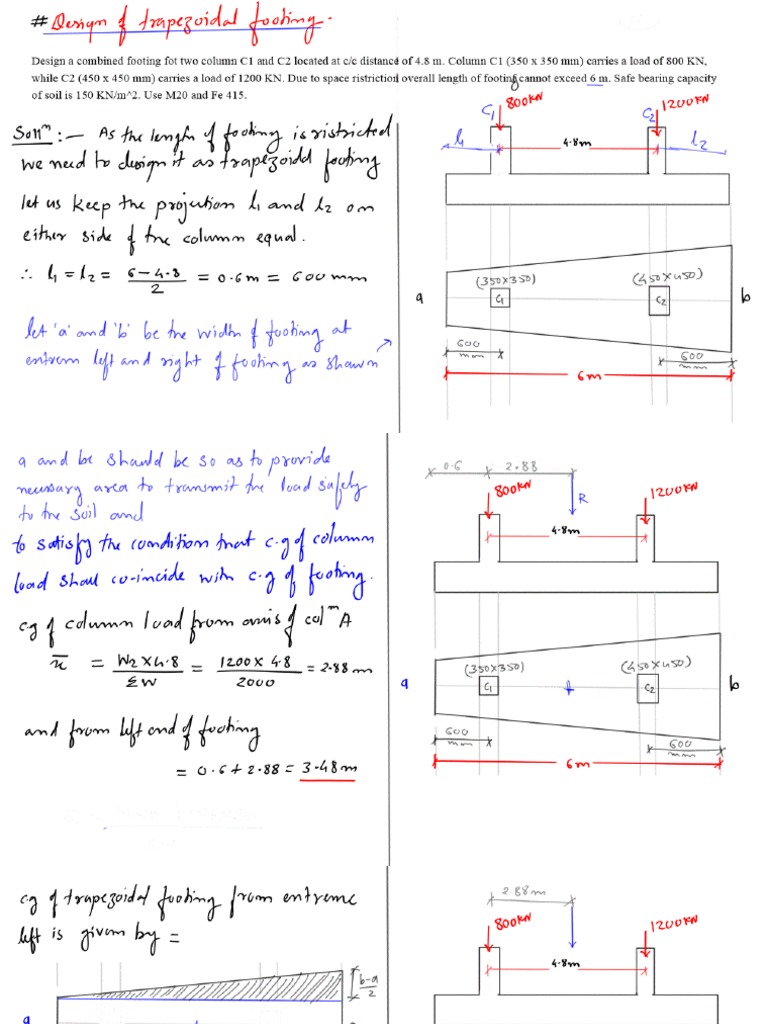 # Design of trapezoidal footing.
Design a combined footing fot two column C1 and C2 located at c/c distance of 4.8 m. Column C1 (350 x 350 mm) carries a load of 800 KN,
while C2 (450 x 450 mm) carries a load of 1200 KN. Due to space ristriction overall length of footing cannot exceed 6 m. Safe bearing capacity
of soil is 150 KN/m^2. Use M20 and Fe 415.
Soln :- As the length of footing is ristricted
we need to design it as trapezoidal footing
let us keep the projection l1 and l2 on
either side of the column equal.
∴ l1 = l2 = (6 - 4.8)/2 = 0.6m = 600 mm
let 'a' and 'b' be the width of footing at
extrem left and right of footing as shown
C1 800KN
C2 1200KN
l1 4.8m l2
(350x350) (450x450)
a C1 C2 b
600 mm
600 mm
6m
a and be should be so as to provide
necessary area to transmit the load safely
to the soil and
to satisfy the condition that c.g of column
load shall co-incide with c.g of footing.
c.g of column load from axis of colm A
x̄ = W2 x 4.8 / ΣW = 1200 x 4.8 / 2000 = 2.88 m
and from left end of footing
= 0.6 + 2.88 = 3.48m
0.6 2.88
800KN R 1200KN
4.8m
(350x350) (450x450)
a C1 C2 b
600 mm
600 mm
6m
c.g of trapezoidal footing from extreme
left is given by =
b-a/2
a
2.88m
800KN 1200KN
4.8m